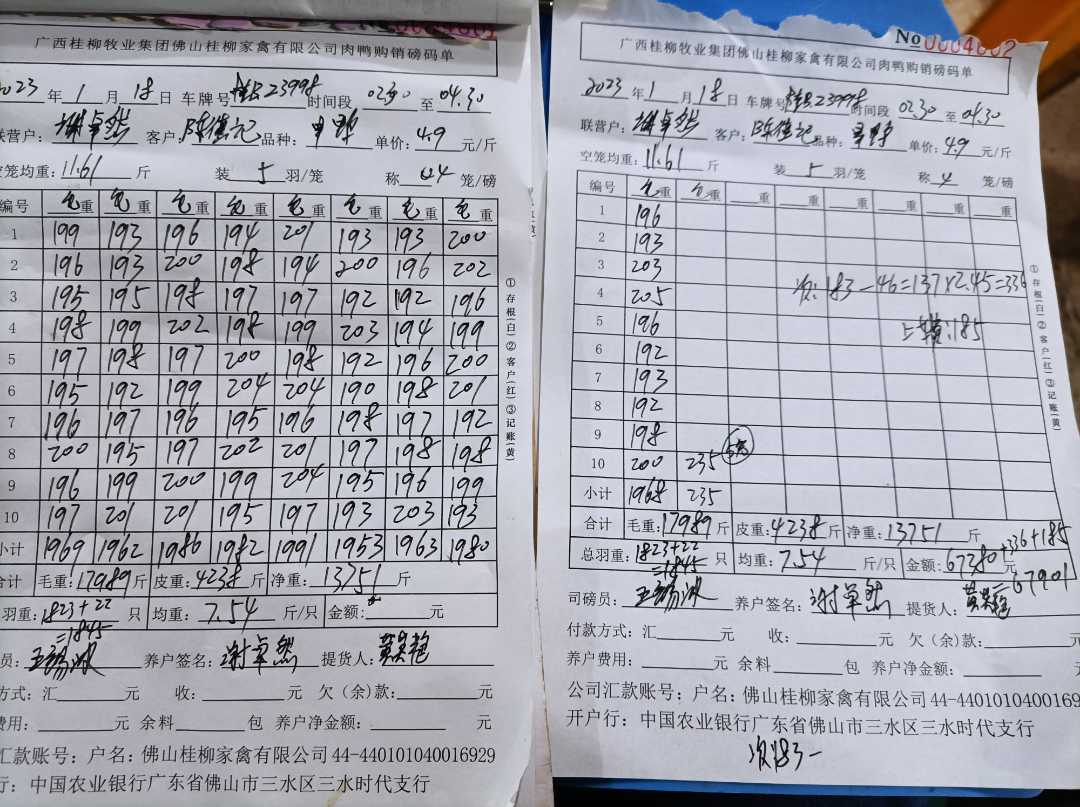 广西桂柳牧业集团佛山桂柳家禽有限公司肉鸭购销磅码单
2023年1月18日 车牌号 23998 时间段 02.30 至 04.30
联营户: 谢卓然 客户: 陈佳记 品种: 单价: 4.9 元/斤
空笼均重: 11.61 斤 装 5 羽/笼 称 4 笼/磅
编号 毛重 毛重 毛重 毛重 毛重 毛重 毛重 毛重
1 199 193 196 194 201 193 193 200
2 196 193 200 198 194 200 196 202
3 195 195 198 197 197 192 192 196
4 198 199 202 198 199 203 194 199
5 197 198 197 200 198 192 196 200
6 195 192 199 204 204 190 198 201
7 196 197 196 195 196 198 197 192
8 200 195 197 202 201 197 198 198
9 196 199 200 199 204 195 196 199
10 197 201 201 195 197 193 203 193
小计 1969 1962 1986 1982 1991 1953 1963 1980
合计 毛重: 17989 斤 皮重: 4238 斤 净重: 13751 斤
羽重: 1823+22 只 均重: 7.54 斤/只 金额: 元
=1845
员: 养户签名: 谢卓然 提货人:
方式: 汇 元 收: 元 欠(余)款: 元
费用: 元 余料 包 养户净金额: 元
汇款账号: 户名: 佛山桂柳家禽有限公司 44-440101040016929
行: 中国农业银行广东省佛山市三水区三水时代支行
①存根(白)②客户(红)③记账(黄)
No 0004602
广西桂柳牧业集团佛山桂柳家禽有限公司肉鸭购销磅码单
2023年1月18日 车牌号 23998 时间段 02.30 至 04.30
联营户: 谢卓然 客户: 陈佳记 品种: 单价: 4.9 元/斤
空笼均重: 11.61 斤 装 5 羽/笼 称 4 笼/磅
编号 毛重 毛重 重 重 重 重 重 重
1 196
2 193
3 203
4 205 次: 183-46=137×2.45=336
5 196 185
6 192
7 193
8 192
9 198
10 200 235
小计 1968 235
合计 毛重: 17989 斤 皮重: 4238 斤 净重: 13751 斤
总羽重: 1823+22 只 均重: 7.54 斤/只 金额: 67380+336+185 元
=1845 =67901
司磅员: 养户签名: 谢卓然 提货人:
付款方式: 汇 元 收: 元 欠(余)款: 元
养户费用: 元 余料 包 养户净金额: 元
公司汇款账号: 户名: 佛山桂柳家禽有限公司 44-4401010400169
开户行: 中国农业银行广东省佛山市三水区三水时代支行
次183-
①存根(白)②客户(红)③记账(黄)